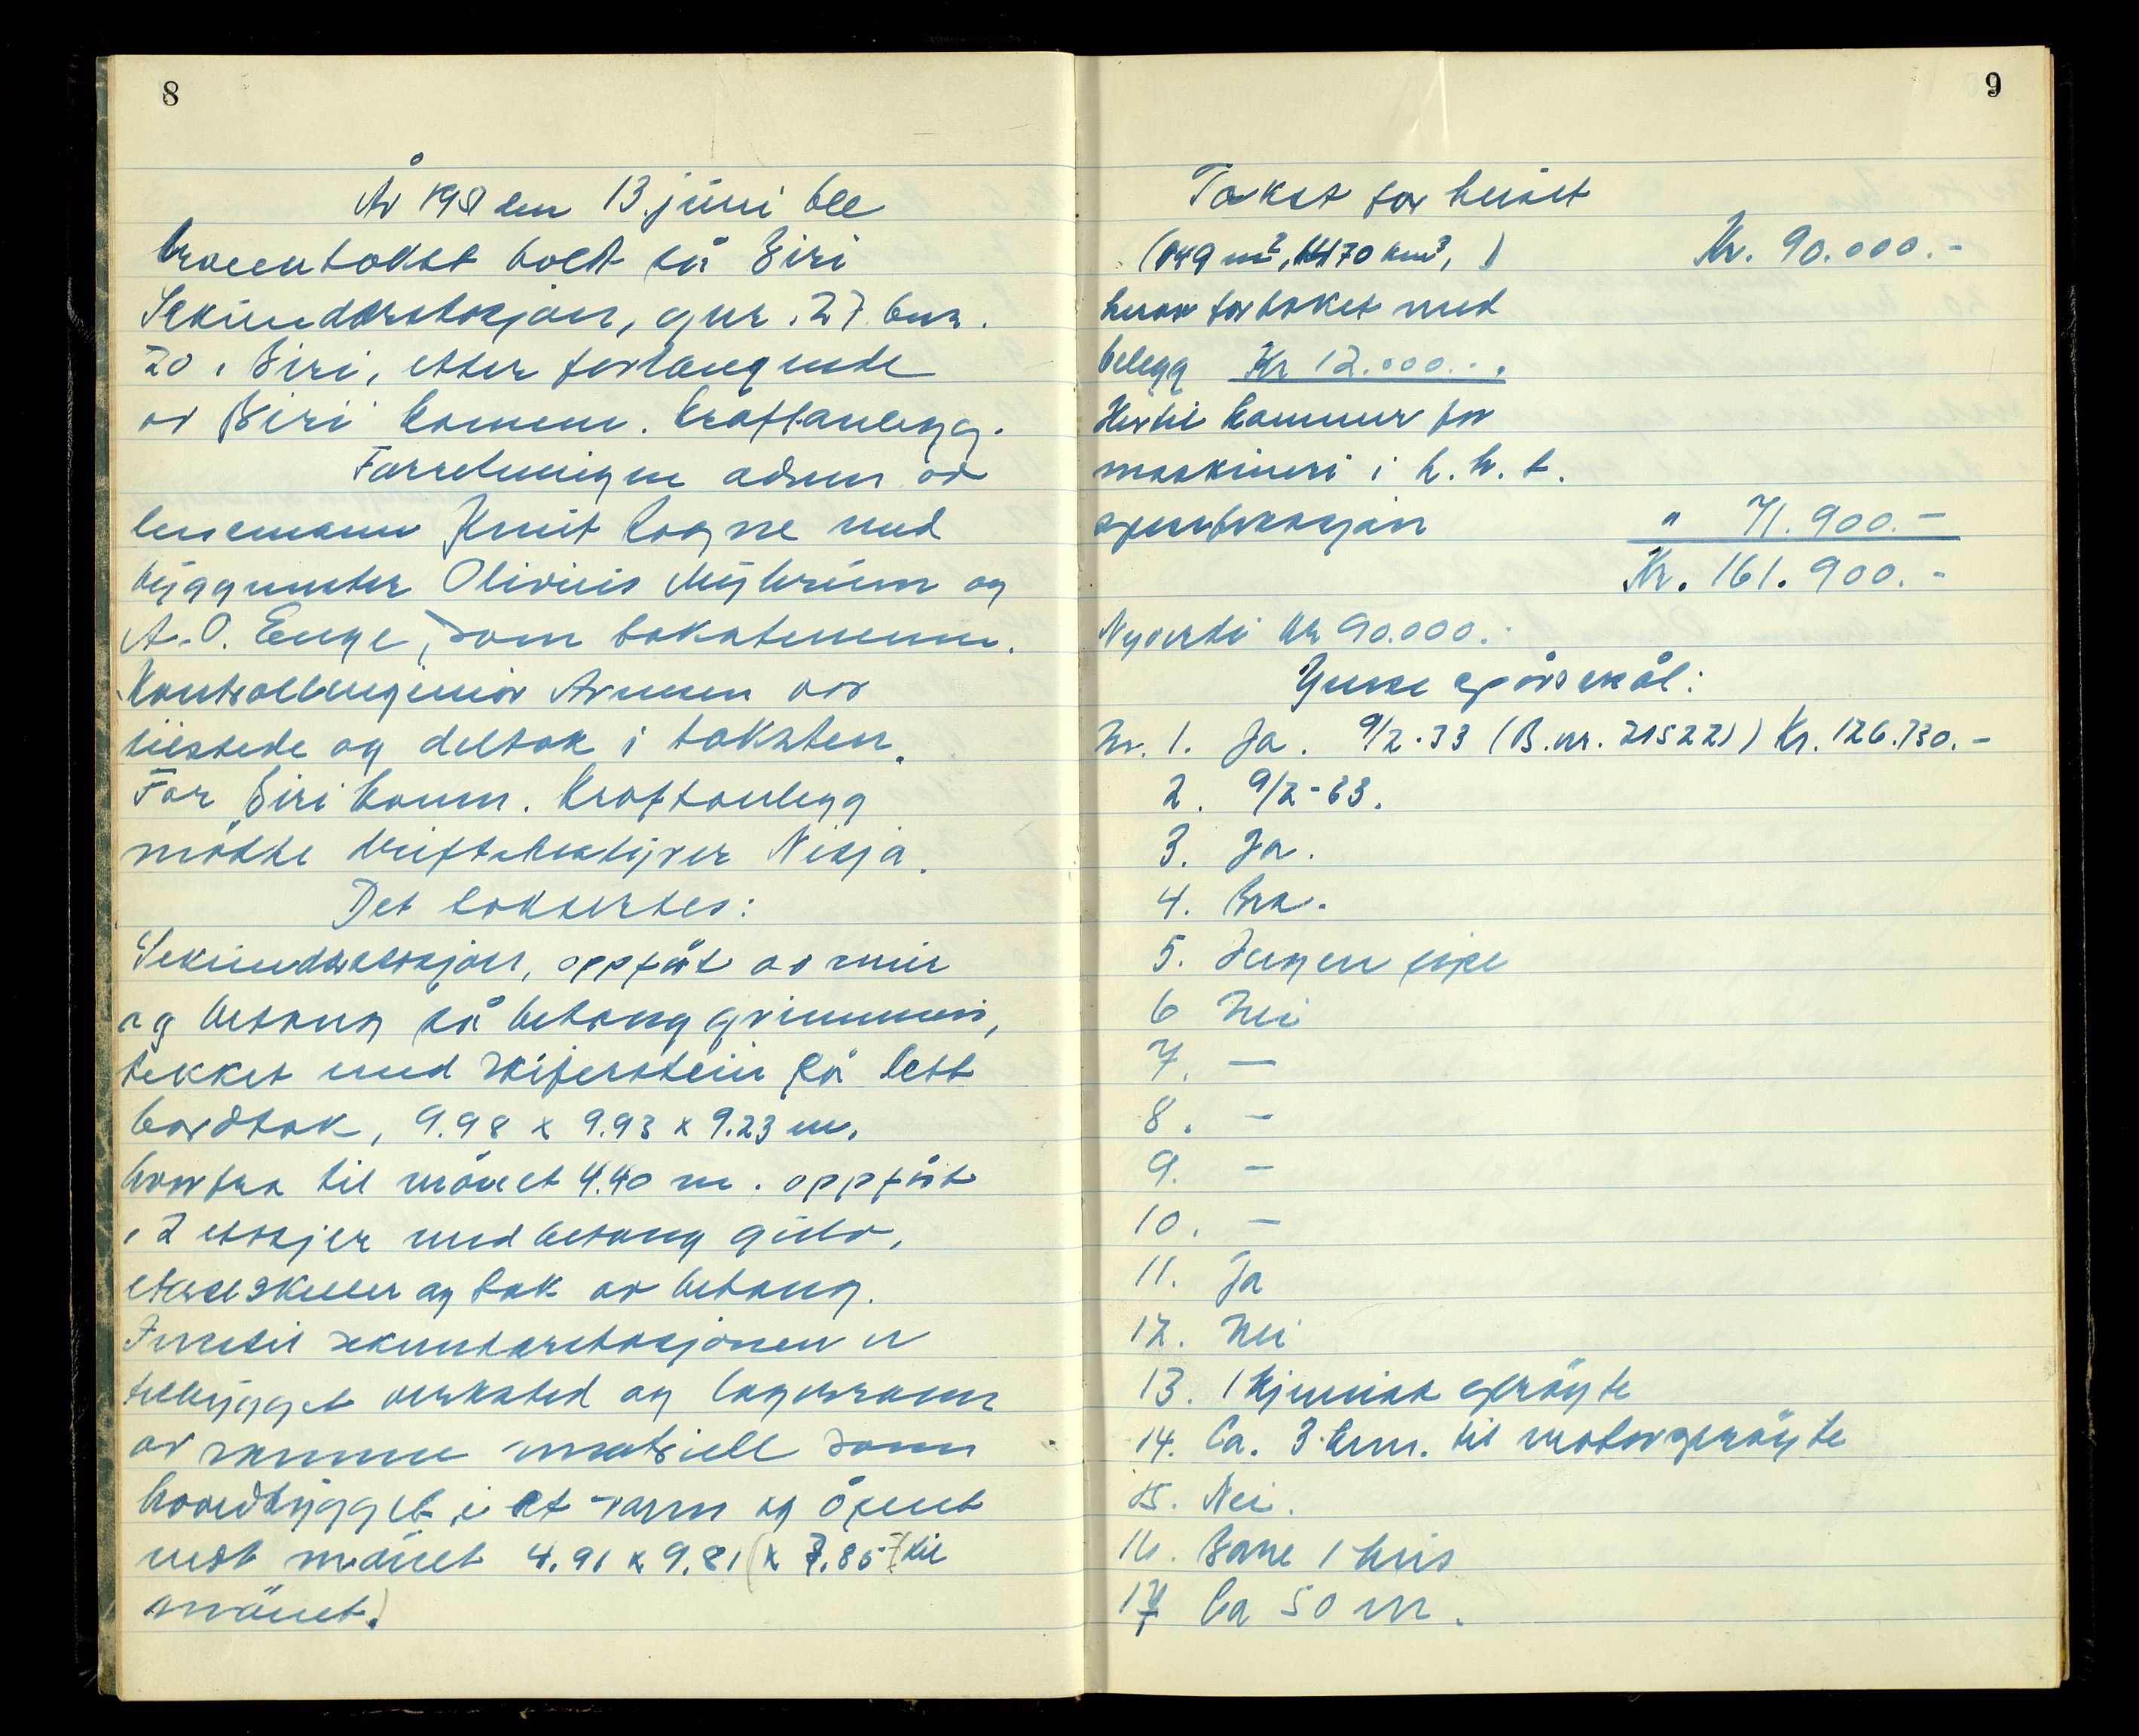 8
År 1951 den 13. juni ble
branntakst holdt på Biri
Sekundærstasjon, gnr. 27 bnr.
20 i Biri, etter forlangende
av Biri komm. kraftanlegg.
Forretningen adm. av
lensmann Knut Rogne med
byggmester Olivius Myhrum og
A. O. Enge, som takstmenn.
Kontrollingeniør Arnesen var
tilstede og deltok i taksten.
For Biri komm. Kraftanlegg
møtte driftsbestyrer Nisja.
Det taksertes:
Sekundærstasjon, oppført av mur
og betong på betonggrunnmur,
tekket med skiferstein på tett
bordtak, 9.98 x 9.93 x 9.23 m.
herfra til mønet 4.40 m. oppført
i 2 etasjer med betong gulv,
etasjeskiller og tak av betong.
Inntil sekundærstasjonen er
tilbygget verksted og lagerrom
av samme matriell som
hovedbygget i et rom og åpent
mot mønet 4.91 x 9.81 (x 7.85 til
mønet.)
9
Takst for huset
(149 m², 1470 km³, ) Kr. 90.000.-
herav for taket med
belegg Kr 12.000.-.
Hertil kommer for
maskineri i h. h. t.
spesifikasjon " 71.900.-
Kr. 161.900.-
Nyverdi kr 90.000.-
Ymse spørsmål:
Nr. 1. Ja. 9/2-33 (B.nr. 215221) Kr. 126.730.-
2. 9/2-33.
3. Ja.
4. Bra.
5. Ingen pipe
6 Nei
7. —
8. —
9. —
10. —
11. Ja
12. Nei
13. 1 kjemisk sprøyte
14. Ca. 3 km. til motorsprøyte
15. Nei.
16. Bare 1 hus
17 Ca 50 m.